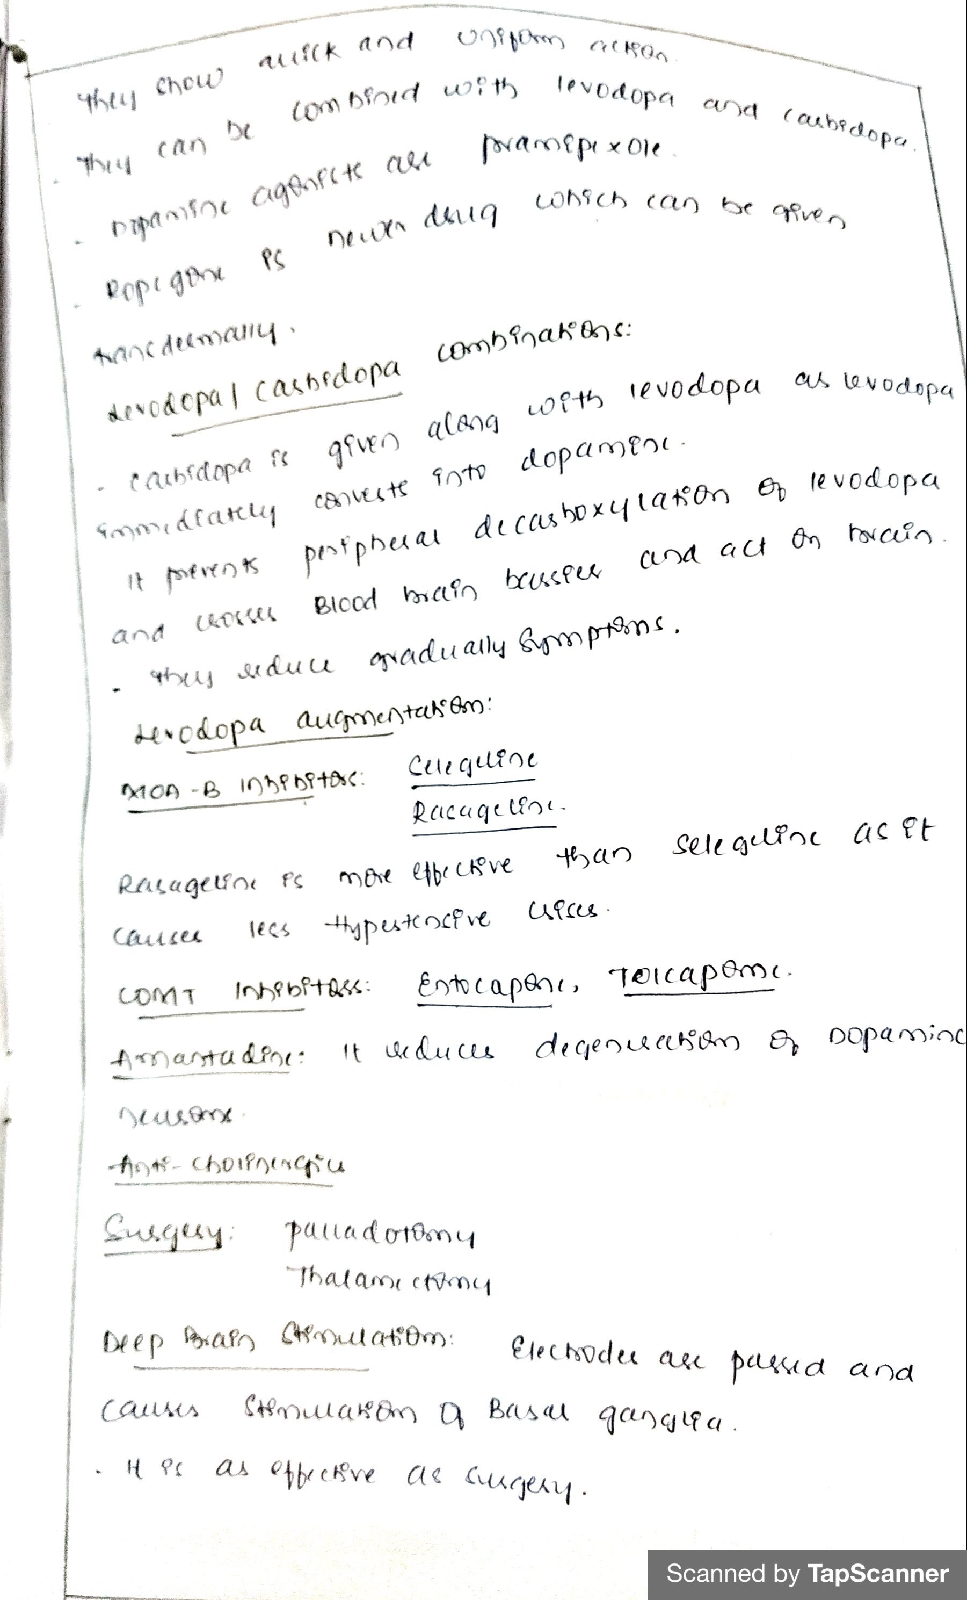 They show quick and uniform action.
. They can be combined with levodopa and carbidopa.
. Dopamine agonists are pramipexole.
. Ropigone is newer drug which can be given
transdermally.
Levodopa/ Carbidopa combinations:
. Carbidopa is given along with levodopa as levodopa
immediately converts into dopamine.
It prevents peripheral decarboxylation of levodopa
and crosses Blood brain barrier and act on brain.
. They reduce gradually symptoms.
Levodopa augmentation:
MOA-B Inhibitors: Selegeline
Rasageline.
Rasageline is more effective than Selegeline as it
causes less Hypertensive crises.
COMT Inhibitors: Entocapone, Tolcapone.
Amantadine: It reduces degeneration of Dopamine
neurons.
Anti-cholinergics
Surgery: palladotomy
Thalamectomy
Deep Brain Stimulation: Electrodes are passed and
causes Stimulation of Basal ganglia.
. It is as effective as surgery.
Scanned by TapScanner